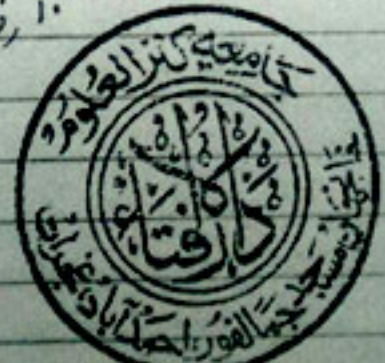 ۱۰
جامعہ کنز العلوم
دار الافتاء
مسجد جمالفور احمد آباد گجرات